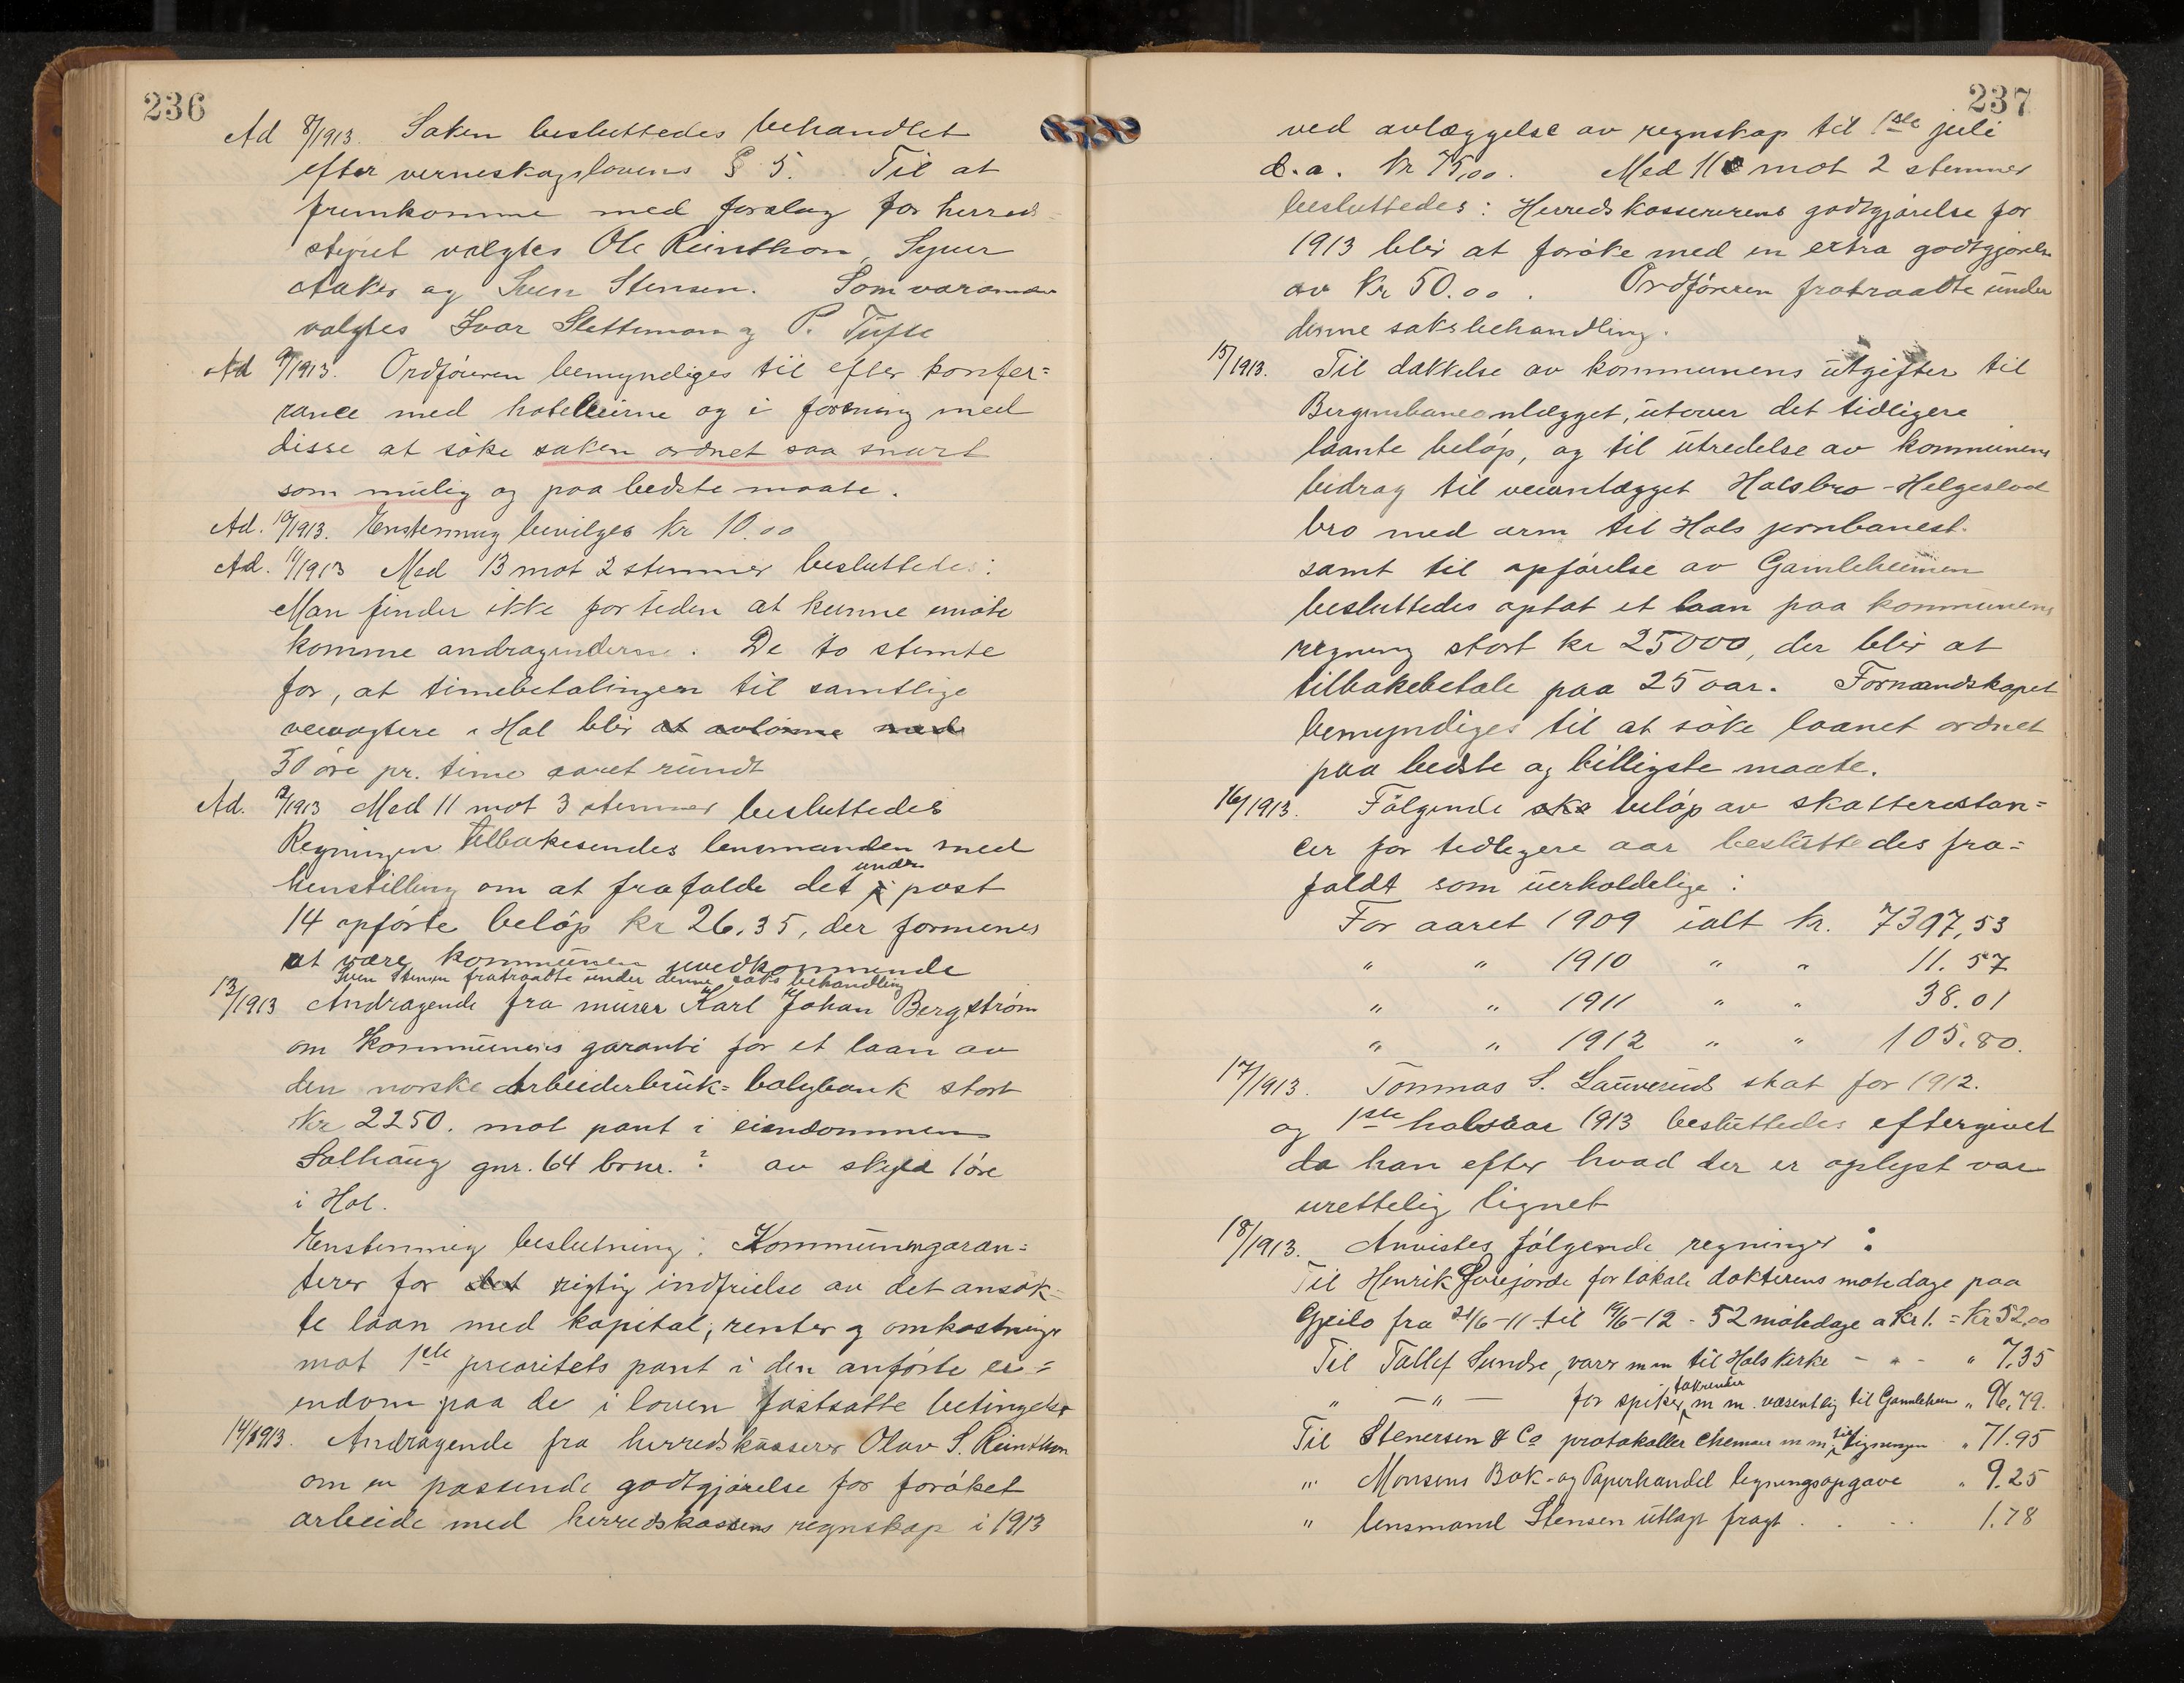 236
Ad 8/1913. Saken besluttedes behandlet
efter verneskogslovens § 5. Til at
fremkomme med forslag for herreds-
styret valgtes Ole Reinthon, Sjur
Aaker og Sven Stensen. Som varamæn
valgtes Ivar Slettemoen og P. Tufte
Ad 9/1913. Ordføreren bemyndiges til efter konfer=
rance med hotelleierne og i forening med
disse at søke saken ordnet saa snart
som mulig og paa bedste maate.
Ad. 10/1913. Enstemmig bevilges kr 10.00
Ad. 11/1913 Med 13 mot 2 stemmer besluttedes:
Man finder ikke for tiden at kunne imøte
komme andragenderne. De to stemte
for, at timebetalingen til samtlige
veivogtere i Hol blir at avlønne med
30 øre pr. time aaret rundt
Ad. 12/1913 Med 11 mot 3 stemmer besluttedes
Regningen tilbakesendes lensmanden med
henstilling om at frafalde det i under post
14 opførte beløp kr 26.35, der formenes
at være kommunen uvedkommende
Sven Stensen fratraadte under denne saks behandling
13/1913 Andragende fra murer Karl Johan Bergström
om kommunens garanti for et laan av
den norske Arbeiderbruk= boligbank stort
Kr 2250. mot pant i eiendommen
Solhaug gnr. 64 brnr. ? av skyld 1 øre
i Hol.
Enstemmig beslutning: Kommunen garan=
terer for det rigtig indfrielse av det ansøk=
te laan med kapital, renter og omkostninger
mot 1ste prioritets pant i den anførte ei=
endom paa de i loven fastsatte betingelser
14/1913. Andragende fra herredskasserer Olav S. Reinthon
om en passende godtgjørelse for forøket
arbeide med herredskassens regnskap i 1913
237
ved avlæggelse av regnskap til 1ste juli
d.a. kr 75,00. Med 11 mot 2 stemmer
besluttedes: Herredskassererens godtgjørelse for
1913 blir at forøke med en extra godtgjørelse
av kr 50.00. Ordføreren fratraadte under
denne saksbehandling.
15/1913. Til dækkelse av kommunens utgifter til
Bergensbaneanlægget, utover det tidligere
laante beløp, og til utredelse av kommunens
bidrag til veianlægget Holsbro - Helgeslod
bro med arm til Hols jernbanest.
samt til opførelse av Gamleheimen
besluttedes optat et laan paa kommunens
regning stort kr 25000, der blir at
tilbakebetale paa 25 aar. Formandskapet
bemyndiges til at søke laanet ordnet
paa bedste og billigste maate.
16/1913. Følgende ska beløp av skatterestan=
cer for tidligere aar besluttedes fra=
faldt som uerholdelige:
For aaret 1909 ialt kr. 7397,53
" " 1910 " " 11.57
" " 1911 " " 38.01
" " 1912 " " 105.80.
17/1913. Tommas S. Lauveruds skat for 1912.
og 1ste halvaar 1913 besluttedes eftergivet
da han efter hvad der er oplyst var
urettelig lignet
18/1913. Anvistes følgende regninger:
Til Henrik for lokale dokterens møtedage paa
Gjeilo fra 21/6-11 til 19/6-12 - 52 møtedage a kr 1. = Kr 52,00
Til Tollef Sundre, varer m m til Hols kirke - " - " 7,35
" - " - for spiker, takrender m m. væsentlig til Gamleheim " 96,79.
Til Stenersen & Co protokoller m m til ligningen " 71.95
" Monsens Bok- og Papirhandel ligningsopgave " 9.25
" lensmand Stensen utlagt fragt . . . . 1.78